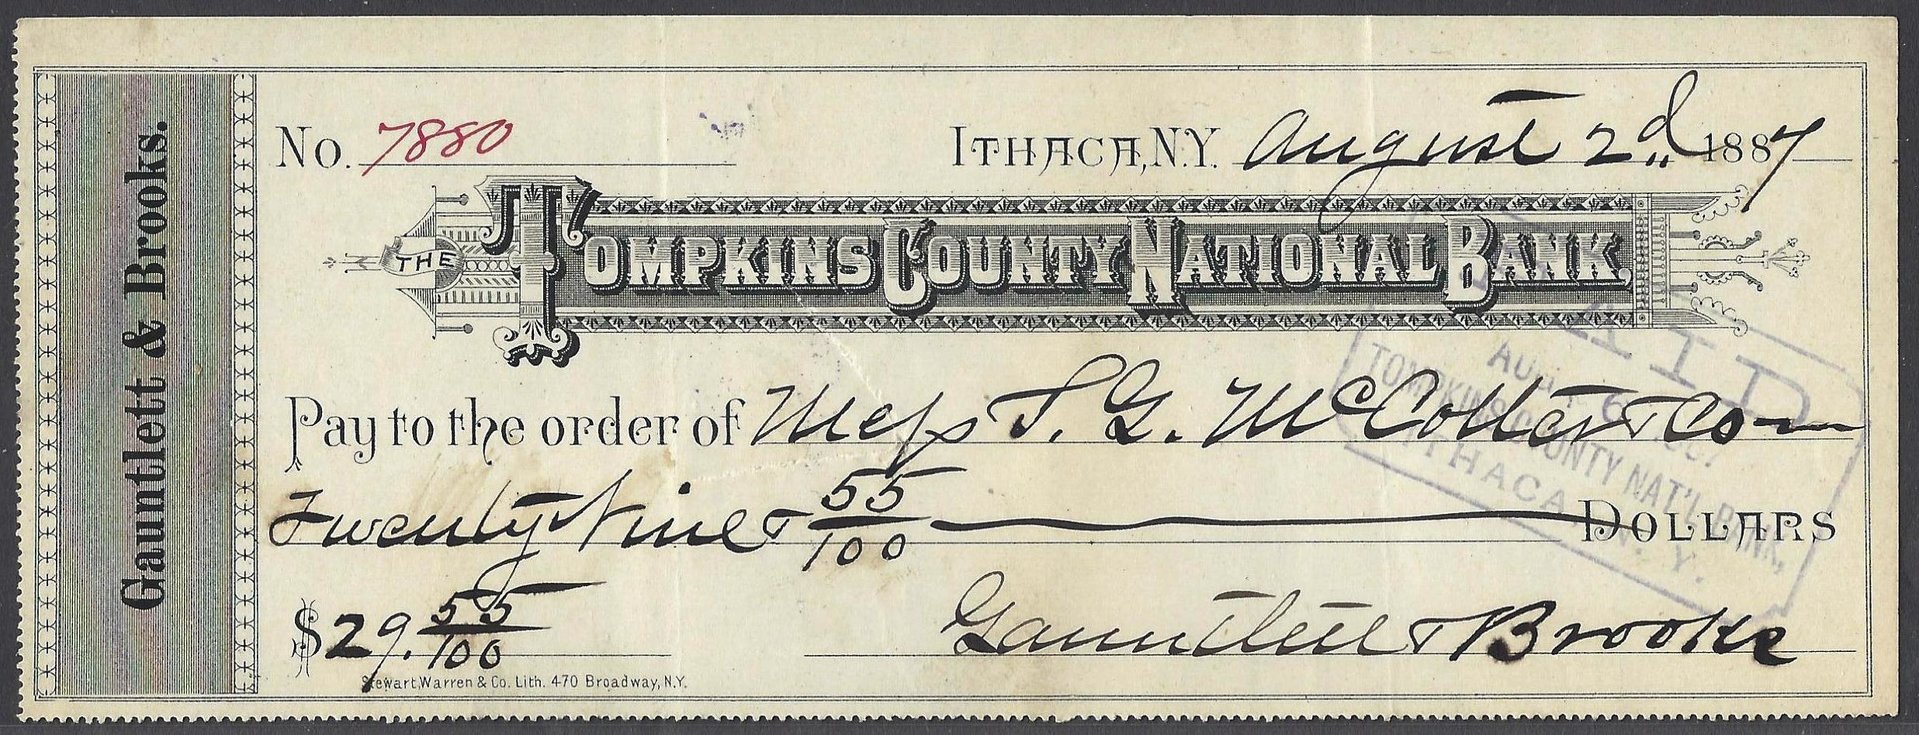 Gauntlett & Brooks.
No. 7880
ITHACA, N.Y. August 2d 1887
THE TOMPKINS COUNTY NATIONAL BANK.
PAID
AUG 6
TOMPKINS COUNTY NAT'L BANK,
ITHACA, N. Y.
Pay to the order of Mess T. G. McCotter & Co
Twenty Nine & 55/100 DOLLARS
$29.55/100 Gauntlett & Brooks
Stewart, Warren & Co. Lith. 470 Broadway, N.Y.